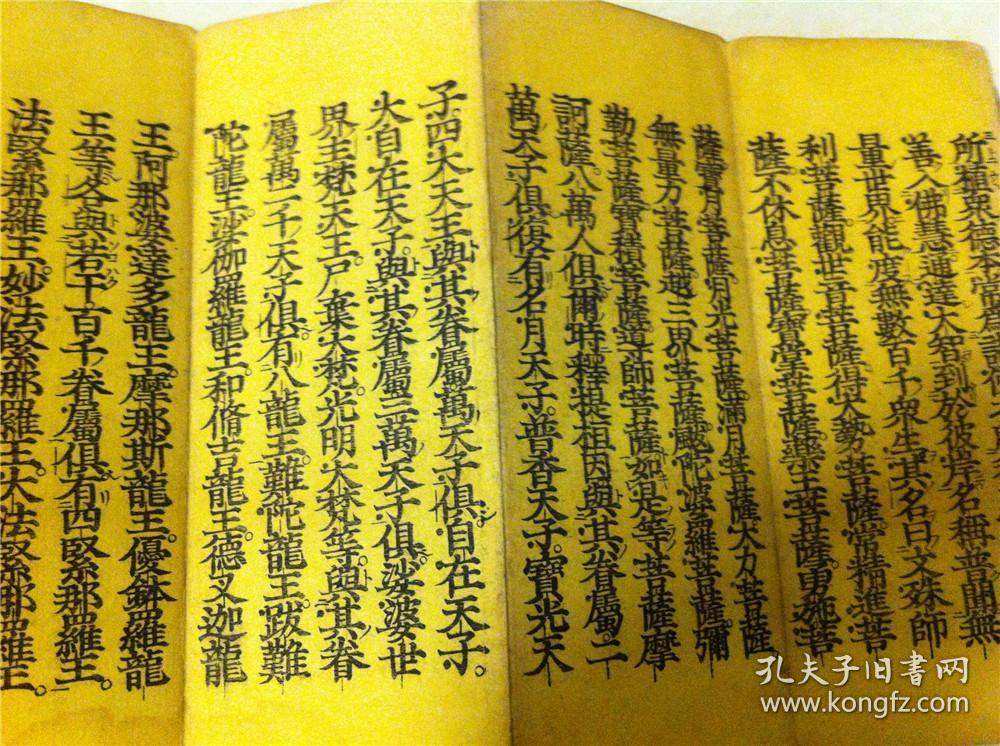 善入佛慧通達大智到於彼岸名稱普聞無
量世界能度無數百千眾生其名曰文殊師
利菩薩觀世音菩薩得大勢菩薩常精進菩
薩不休息菩薩寶掌菩薩藥王菩薩勇施菩
薩寶月菩薩月光菩薩滿月菩薩大力菩薩
無量力菩薩越三界菩薩颰陀婆羅菩薩彌
勒菩薩寶積菩薩導師菩薩如是等菩薩摩
訶薩八萬人俱爾時釋提桓因與其眷屬二
萬天子俱復有名月天子普香天子寶光天
子四大天王與其眷屬萬天子俱自在天子
大自在天子與其眷屬三萬天子俱娑婆世
界主梵天王尸棄大梵光明大梵等與其眷
屬萬二千天子俱有八龍王難陀龍王跋難
陀龍王娑伽羅龍王和脩吉龍王德叉迦龍
王阿那婆達多龍王摩那斯龍王優鉢羅龍
王等各與若干百千眷屬俱有四緊那羅王
法緊那羅王妙法緊那羅王大法緊那羅王
孔夫子旧书网
www.kongfz.com